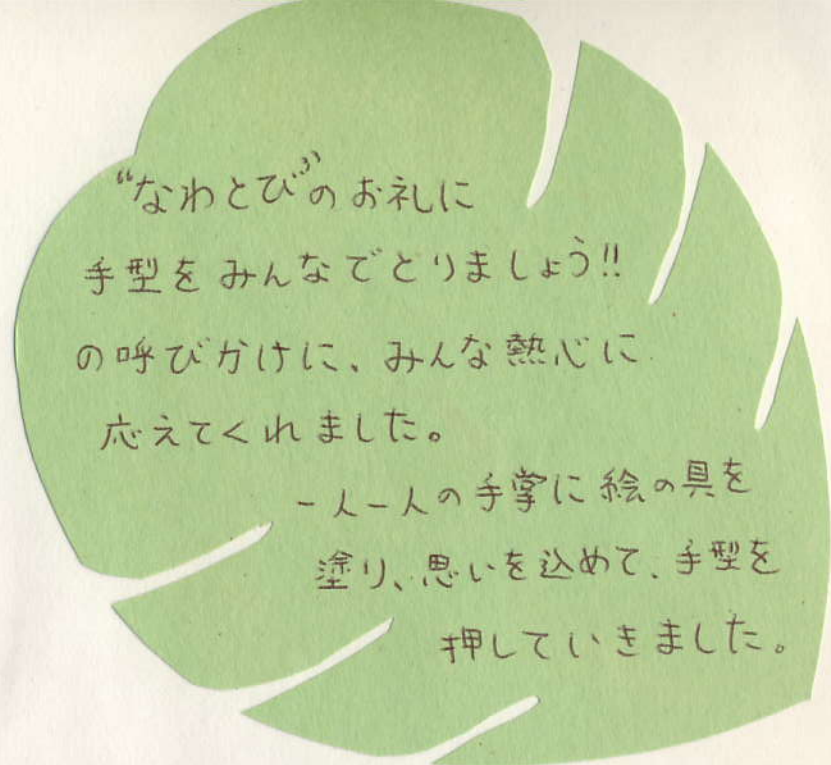 “なわとび”のお礼に
手型をみんなでとりましょう!!
の呼びかけに、みんな熱心に
応えてくれました。
一人一人の手掌に絵の具を
塗り、思いを込めて、手型を
押していきました。